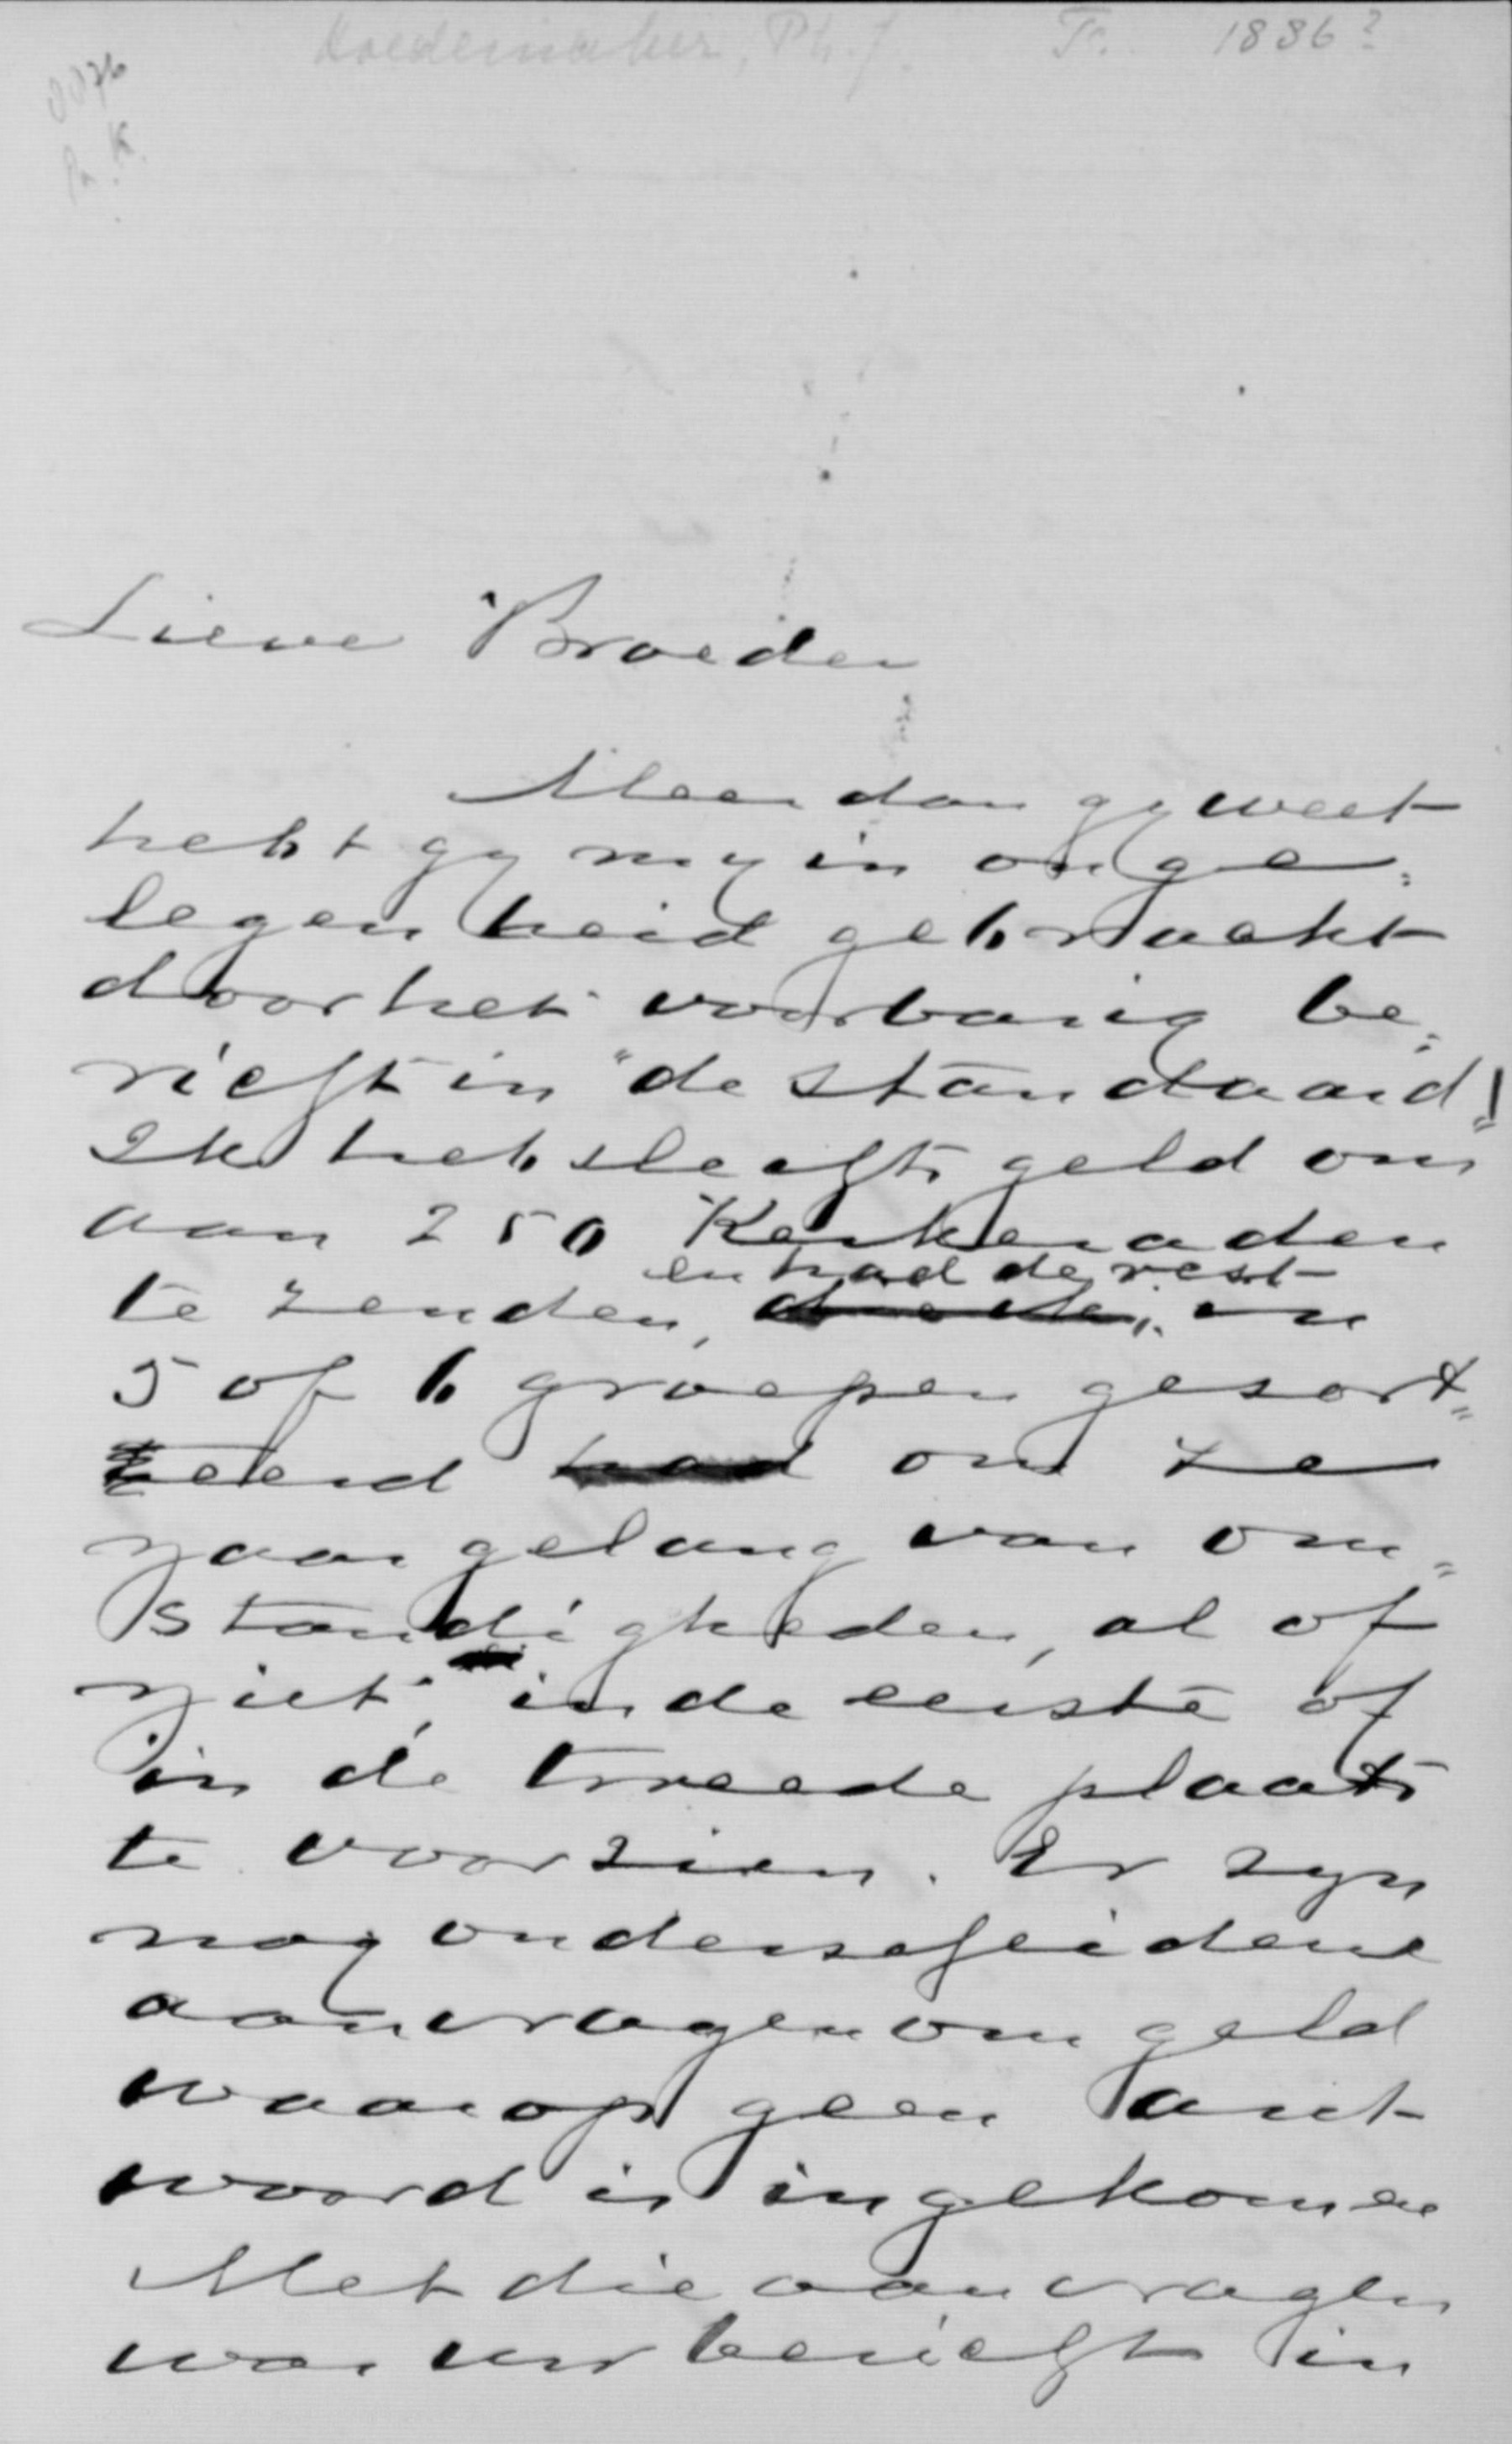 Hoedemaker, Ph. J. Fr. 1886?
Lieve Broeder
Meer dan gy weet
hebt gy my in onge=
legenheid gebracht
door het voorbarig be=
richt in "de Standaard"!
Ik heb slechts geld om
aan 250 Kerkeraden
en had de rest
te zenden, in
5 of 6 groepen gesort=
teerd had om ze
naar gelang van om=
standigheden, al of
niet, in de eerste of
in de tweede plaats
te voorzien. Er zyn
nog onderscheidene
aanvragen om geld
waarop geen ant
woord is ingekomen
Met die aanvragen
was uw bericht in